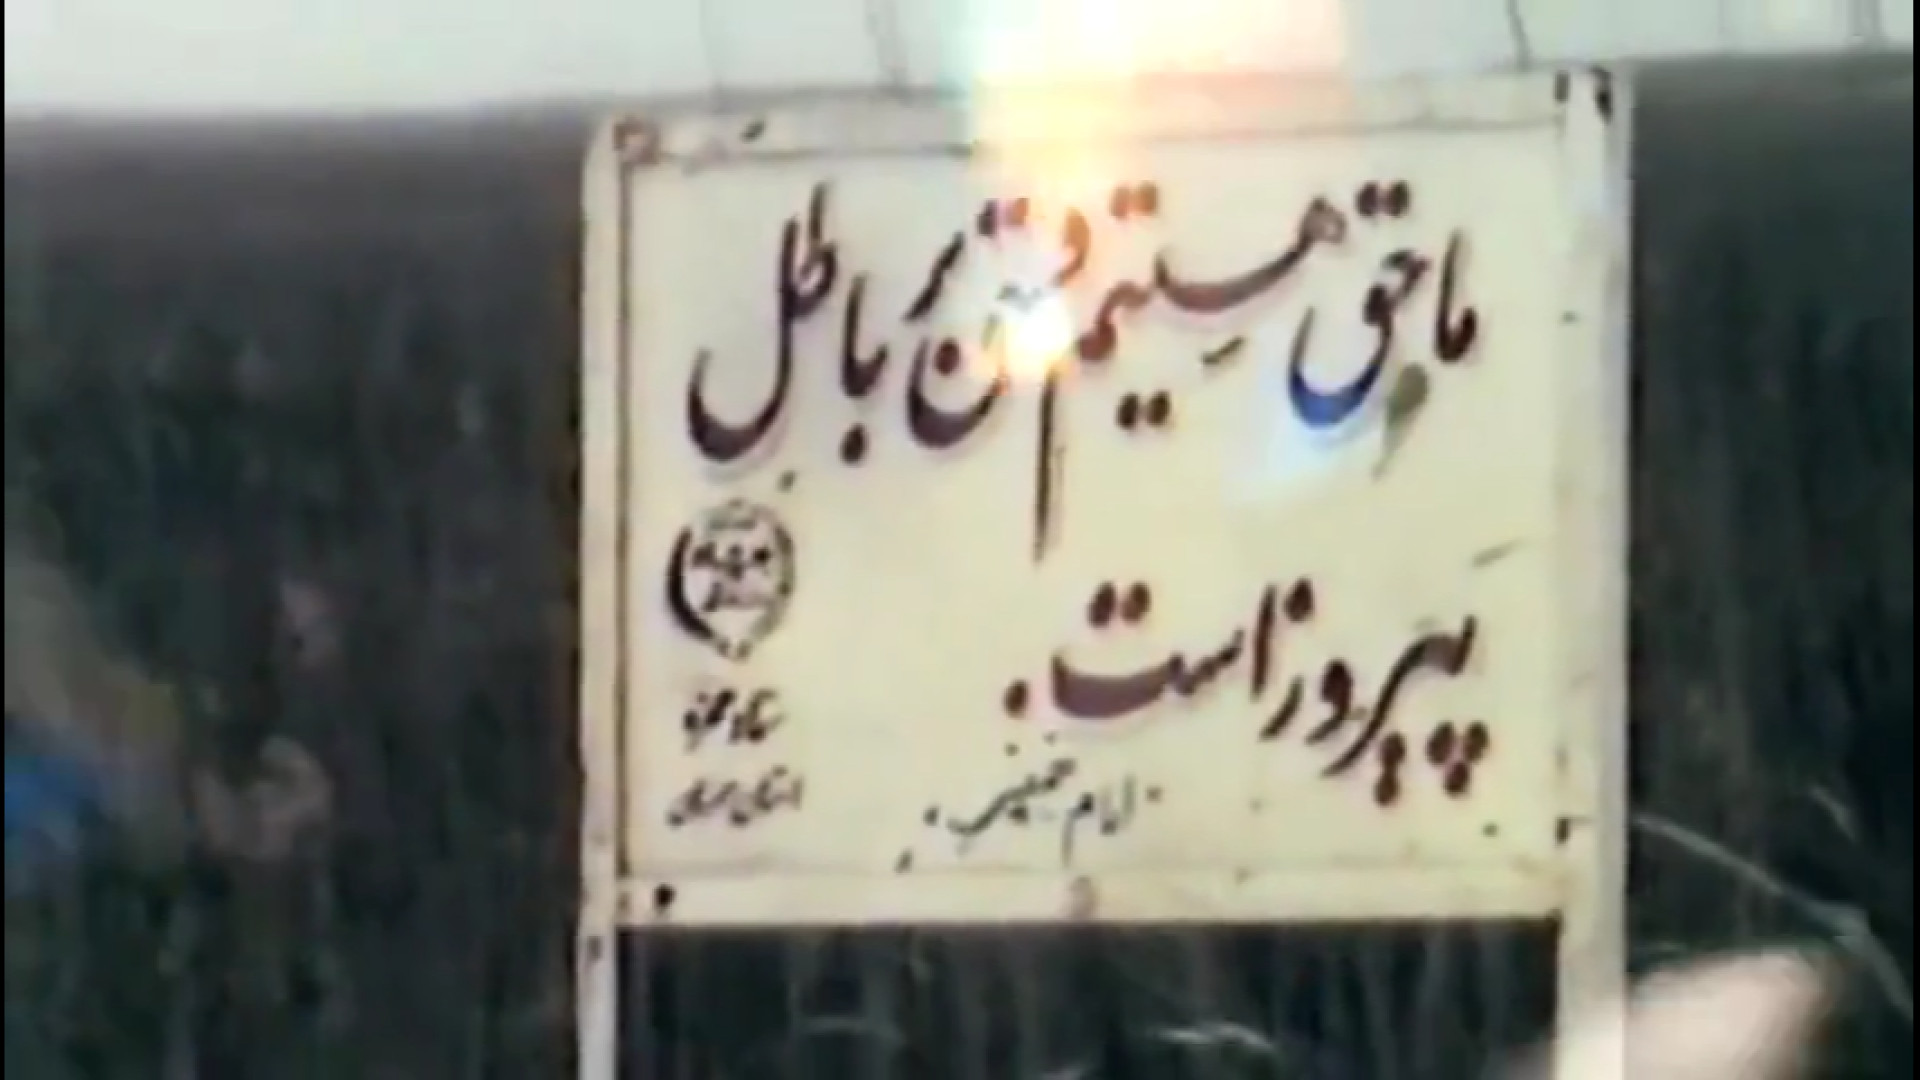 ما حق هستیم و حق بر باطل
پیروز است.
امام خمینی
ستاد
استان